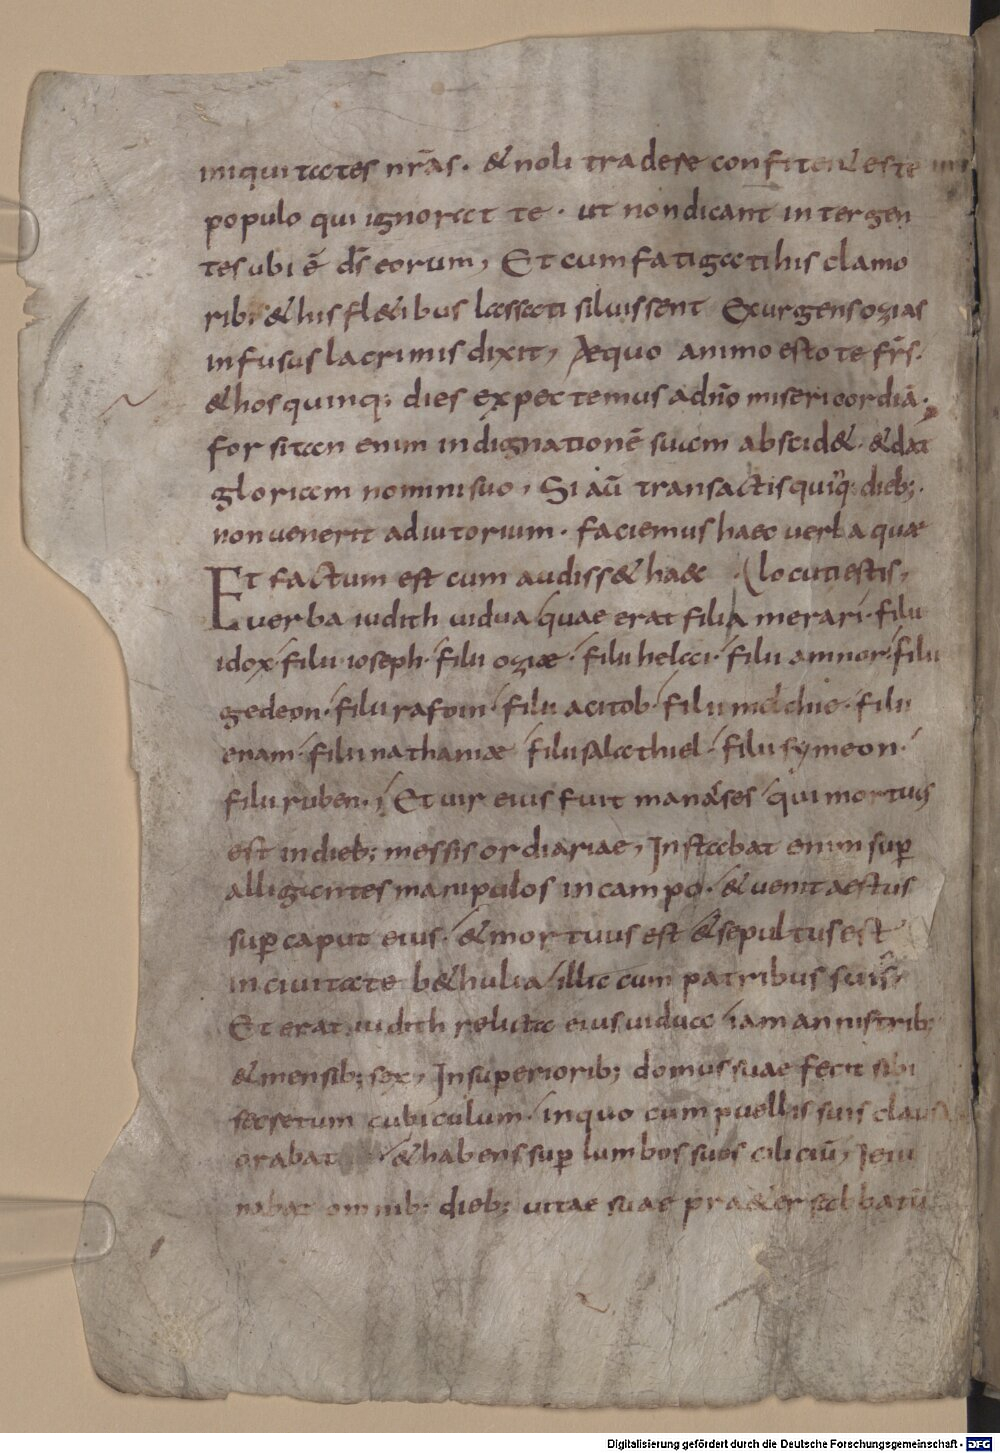 iniquitates nr̄as· & noli tradere confitentes te
populo qui ignorat te· ut non dicant inter gen
tes ubi ē d̄s eorum, Et cum fatigati his clamo
rib; & his fl&ibus lassati siluissent Exurgens ozias
infusus lacrimis dixit, Aequo animo estote fr̄s·
& hos quinq; dies expectemus ad n̄o misericordiā·
forsitan enim indignationē suam abscid&· & dat
gloriam nomini suo, Si aū transactis quinq; dieb;·
non uenerit adiutorium· faciemus haec uerba quae
Et factum est cum audiss& haec (locuti estis,
uerba iudith uidua quae erat filia merari· filii
idox· filii ioseph· filii oziae· filii helai· filii amnor· filii
gedeon· filii rafoin· filii acitob· filii melchie· filii
enam· filii nathaniae filii salathiel· filii symeon·
filii ruben·, Et uir eius fuit manases qui mortuus
est in dieb; messis ordiariae, Instabat enim sup̄
alligantes manipulos in campo· & uenit aestus
sup̄ caput eius· & mortuus est & sepultus est
in ciuitate b&hulia illic cum patribus suis,
Et erat iudith relicta eius uidua iam annis trib;
& mensib; sex, In superiorib; domus suae fecit sibi
secretum cubiculum· in quo cum puellis suis clausa
orabat & habens sup̄ lumbos suos ciliciū, Ieiu
nabat omnib; dieb; uitae suae pra&er sabbatū
Digitalisierung gefördert durch die Deutsche Forschungsgemeinschaft - DFG